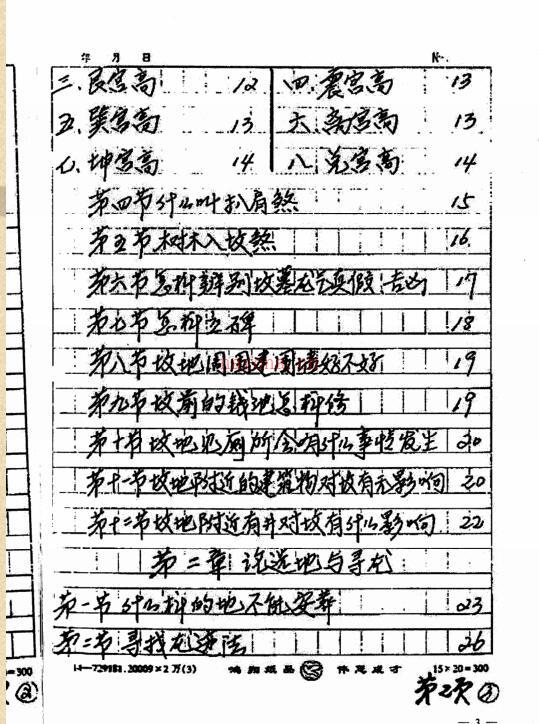 年 月 日 №
三.艮宫高 12 四.震宫高 13
五.巽宫高 13 六.离宫高 13
七.坤宫高 14 八.兑宫高 14
第四节什么叫扒肩煞 15
第五节树木入坟煞 16
第六节怎样辨别坟墓龙气真假吉凶 17
第七节怎样立碑 18
第八节坟地周围建围墙好不好 19
第九节坟前的钱池怎样修 19
第十节坟地见厕所会有什么事情发生 20
第十一节坟地附近的建筑物对坟有无影响 20
第十二节坟地附近有井对坟有什么影响 22
第二章 论选地与寻龙
第一节 什么样的地不能安葬 23
第二节 寻找龙进法 26
=300 14—729181.20009×2万(3) 纸品 伴您成才 15×20=300
② 第2页 ③
— 3 —